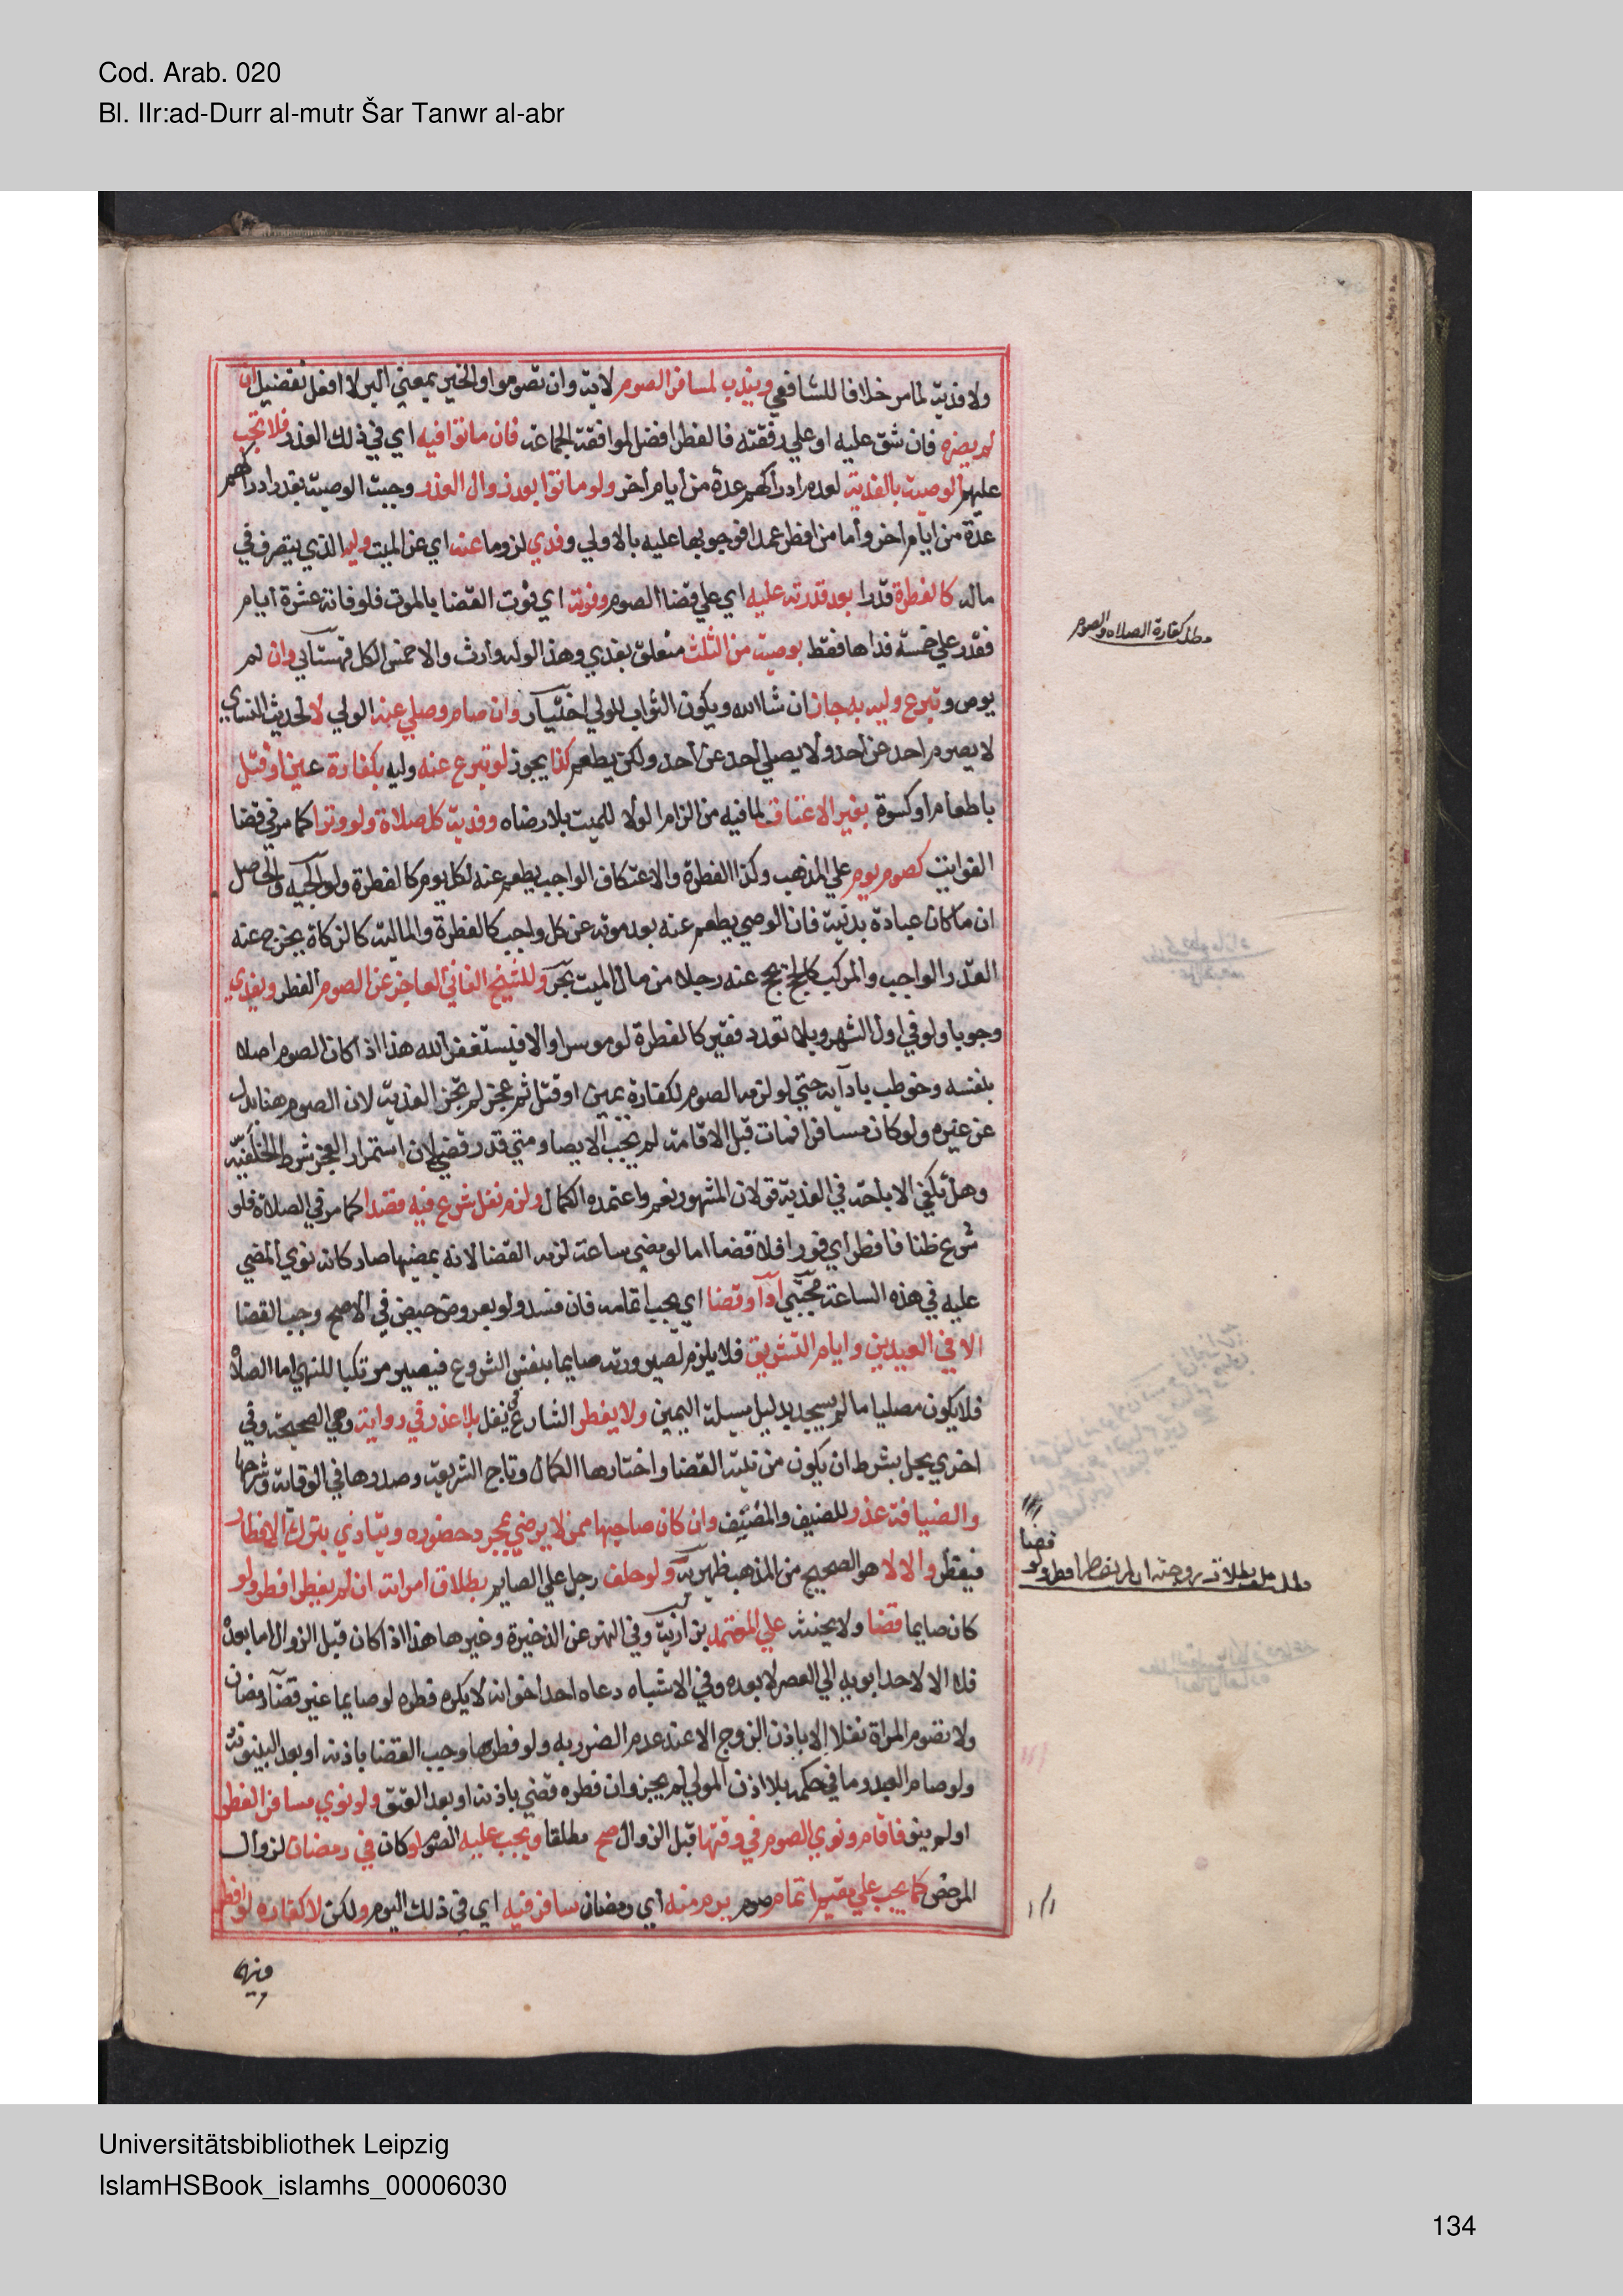 Cod. Arab. 020
Bl. IIr:ad-Durr al-mutr Šar Tanwr al-abr
ولا فدية لما مر خلافا للشافعي ويندب لمسافر الصوم لاية وان تصوموا والخير بمعني البر لا افعل تفضيل ان
لم يضره فان شق عليه او علي رفقته فالفطر افضل لموافقة الجماعة فان ماتوا فيه اي في ذلك العذر فلا تجب
عليهم الوصية بالفدية لعدم ادراكهم عدة من أيام أخر ولو ماتوا بعد زوال العذر وجبت الوصية بقدر ادراكهم
عدة من ايام اخر وأما من افطر عمدا فوجوبها عليه بالاولي وفدي لزوما عنه اي عن الميت وليه الذي يتصرف في
ماله كالفطرة قدرا بعد قدرته عليه اي علي قضا الصوم وفوته اي فوت القضا بالموت فلو فاته عشرة ايام
فقدر علي خمسة فداها فقط بوصية من الثلث متعلق بفدي وهذا لو له وارث والا فمن الكل قهستاني وان لم
يوص وتبرع وليه به جاز ان شا الله ويكون الثواب للولي اختيار وان صام وصلي عنه الولي لا لحديث النساي
لا يصوم احد عن أحد ولا يصلي أحد عن أحد ولكن يطعم كذا يجوز لو تبرع عنه وليه بكفارة يمين او قتل
باطعام او كسوة بغير الاعتاق لما فيه من الزام الولا للميت بلا رضاه وفدية كل صلاة ولو وترا كما مر في قضا
الفوايت كصوم يوم علي المذهب وكذا الفطرة والاعتكاف الواجب يطعم عنه لكل يوم كالفطرة ولوالجيه والحاصل
ان ما كان عبادة بدنية فان الوصي يطعم عنه بعد موته عن كل واجب كالفطرة والمالية كالزكاة يخرج عنه
القدر الواجب والمركب كالحج يحج عنه رجلا من مال الميت بحر وللشيخ الفاني العاجز عن الصوم الفطر ويفدي
وجوبا ولو في اول الشهر وبلا تعدد فقير كالفطرة لو موسرا والا فيستغفر الله هذا اذا كان الصوم اصلا
بنفسه وخوطب بادآيه حتي لو لزمه الصوم لكفارة يمين او قتل ثم عجز لم تجز الفدية لان الصوم هنا بدل
عن غيره ولو كان مسافرا فمات قبل الاقامة لم يجب الايصا ومتي قدر قضي لان استمرار العجز شرط الخلفية
وهل تكفي الاباحة في الفدية قولان المشهور نعم واعتمده الكمال ولزم نفل شرع فيه قصدا كما مر في الصلاة فلو
شرع ظنا فافطر اي فورا فلا قضا اما لو مضي ساعة لزمه القضا لانه بمضيها صار كانه نوي المضي
عليه في هذه الساعة مجتبي أدآ وقضا اي يجب اتمامه فان فسد ولو بعروض حيض في الاصح وجب القضا
الا في العيدين وايام التشريق فلا يلزم لصيرورته صايما بنفس الشروع فيصير مرتكبا للنهي اما الصلاة
فلا يكون مصليا ما لم يسجد بدليل مسيلة اليمين ولا يفطر الشارع في نفل بلا عذر في رواية وهي الصحيحة وفي
اخري يحل بشرط ان يكون من نيته القضا واختارها الكمال وتاج الشريعة وصدرها في الوقاية وشرحها
والضيافة عذر للضيف والمضيف وان كان صاحبها ممن لا يرضي بمجرد حضوره ويتاذي بترك الافطار
فيفطر والا لا هو الصحيح من المذهب ظهيرية ولو حلف رجل علي الصايم بطلاق امراته ان لم يفطر افطر ولو
كان صايما قضا ولا يحنث علي المعتمد بزازية وفي النهر عن الذخيرة وغيرها هذا اذا كان قبل الزوال اما بعده
فلا الا لاحد ابويه الي العصر لا بعده وفي الاشباه دعاه احد اخوانه لا يكره فطره لو صايما غير قضآ رمضان
ولا تصوم المراة نفلا الا باذن الزوج الا عند عدم الضرر به ولو فطرها وجب القضا باذنه او بعد البينونة
ولو صام العبد وما في حكمه بلا اذن المولي لم يجز وان فطره قضي باذنه او بعد العتق ولو نوي مسافر الفطر
او لم ينو فاقام ونوي الصوم في وقتها قبل الزوال صح مطلقا ويجب عليه الصوم لو كان في رمضان لزوال
المرخص كما يجب علي مقيم اتمام صوم يوم منه أي رمضان سافر فيه اي في ذلك اليوم ولكن لا كفارة لو افطر
فيهما
مطلب كفارة الصلاة والصوم
قضا
مطلب حلف بطلاق زوجته ان لم يفطر افطر ولو
Universitätsbibliothek Leipzig
IslamHSBook_islamhs_00006030
134